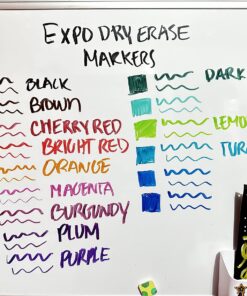 EXPO DRY ERASE
MARKERS
BLACK
BROWN
CHERRY RED
BRIGHT RED
ORANGE
MAGENTA
BURGUNDY
PLUM
PURPLE
DARK
LEMO
TURQ